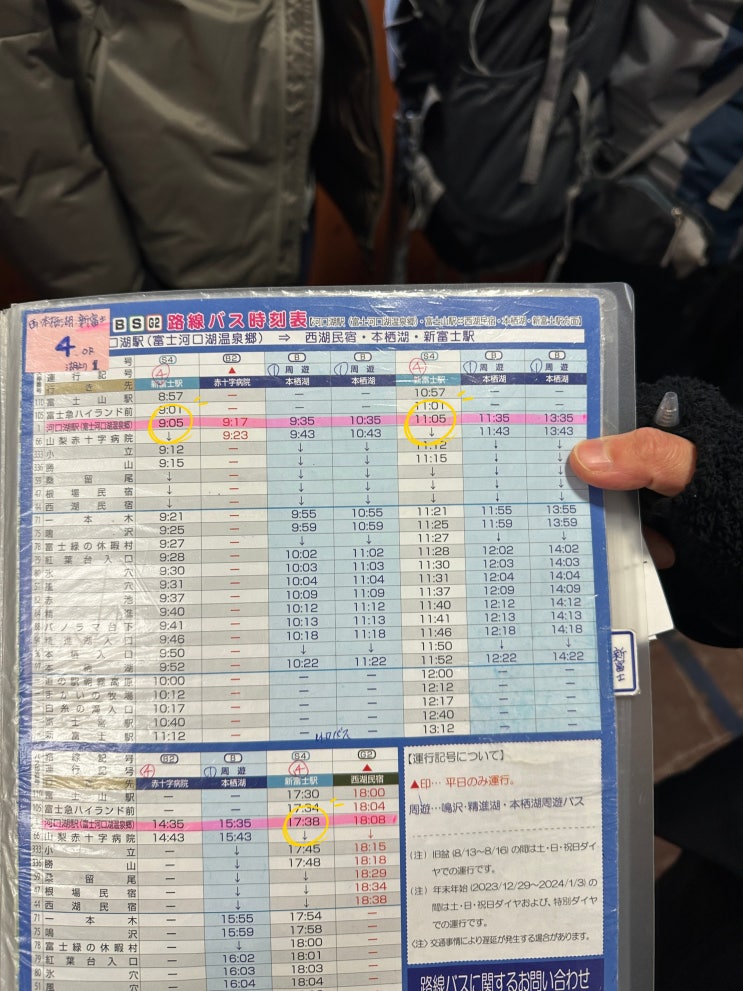 本栖湖・新富士
4 or
B S G2 路線バス時刻表【河口湖駅(富士河口湖温泉郷)・富士山駅⇔西湖民宿・本栖湖・新富士駅方面】
口湖駅(富士河口湖温泉郷) ⇒ 西湖民宿・本栖湖・新富士駅
号 S4 G2 B B S4 B B
運行記号 ④ ▲ ① 周遊 ① 周遊 ④ ① 周遊 ① 周遊
行き先 新富士駅 赤十字病院 本栖湖 本栖湖 新富士駅 本栖湖 本栖湖
富士山駅 8:57 — — — 10:57 — —
富士急ハイランド前 9:01 — — — 11:01 — —
1 河口湖駅(富士河口湖温泉郷) 9:05 9:17 9:35 10:35 11:05 11:35 13:35
山梨赤十字病院 ↓ 9:23 9:43 10:43 ↓ 11:43 13:43
小立 9:12 — ↓ ↓ 11:12 ↓ ↓
336 勝山 9:15 — ↓ ↓ 11:15 ↓ ↓
桑留尾 ↓ — ↓ ↓ ↓ ↓ ↓
47 根場民宿 ↓ — ↓ ↓ ↓ ↓ ↓
44 西湖民宿 ↓ — ↓ ↓ ↓ ↓ ↓
71 一本木 9:21 — 9:55 10:55 11:21 11:55 13:55
75 鳴沢 9:25 — 9:59 10:59 11:25 11:59 13:59
78 富士緑の休暇村 9:27 — ↓ ↓ 11:27 ↓ ↓
79 紅葉台入口 9:28 — 10:02 11:02 11:28 12:02 14:02
80 氷穴 9:30 — 10:03 11:03 11:30 12:03 14:03
51 風穴 9:31 — 10:04 11:04 11:31 12:04 14:04
赤池 9:37 — 10:09 11:09 11:37 12:09 14:09
精進 9:40 — 10:12 11:12 11:40 12:12 14:12
パノラマ台下 9:41 — 10:13 11:13 11:41 12:13 14:13
精進湖入口 9:46 — 10:18 11:18 11:46 12:18 14:18
本栖入口 9:50 — ↓ ↓ 11:50 ↓ ↓
本栖湖 9:52 — 10:22 11:22 11:52 12:22 14:22
道の駅朝霧高原 10:00 — — — 12:00 — —
まかいの牧場 10:12 — — — 12:12 — —
白糸の滝入口 10:17 — — — 12:17 — —
富士宮駅 10:40 — — — 12:40 — —
新富士駅 11:12 — — — 13:12 — —
路線記号 G2 B S4 G2
運行記号 ④ ① 周遊 ④ ▲
行き先 赤十字病院 本栖湖 新富士駅 西湖民宿
富士山駅 — — 17:30 18:00
105 富士急ハイランド前 — — 17:34 18:04
河口湖駅(富士河口湖温泉郷) 14:35 15:35 17:38 18:08
66 山梨赤十字病院 14:43 15:43 ↓ ↓
333 小立 — ↓ 17:45 18:15
336 勝山 — ↓ 17:48 18:18
59 桑留尾 — ↓ ↓ 18:29
47 根場民宿 — ↓ ↓ 18:34
44 西湖民宿 — ↓ ↓ 18:38
71 一本木 — 15:55 17:54 —
75 鳴沢 — 15:59 17:58 —
78 富士緑の休暇村 — ↓ 18:00 —
79 紅葉台入口 — 16:02 18:01 —
80 氷穴 — 16:03 18:03 —
51 風 — 16:04 18:04 —
【運行記号について】
▲印…平日のみ運行。
周遊…鳴沢・精進湖・本栖湖周遊バス
(注)旧盆(8/13~8/16)の間は土・日・祝日ダイ
ヤでの運行です。
(注)年末年始(2023/12/29~2024/1/3)の
間は土・日・祝日ダイヤおよび、特別ダイヤ
での運行です。
〈注〉交通事情により遅延が発生する場合があります。
路線バスに関するお問い合わせ